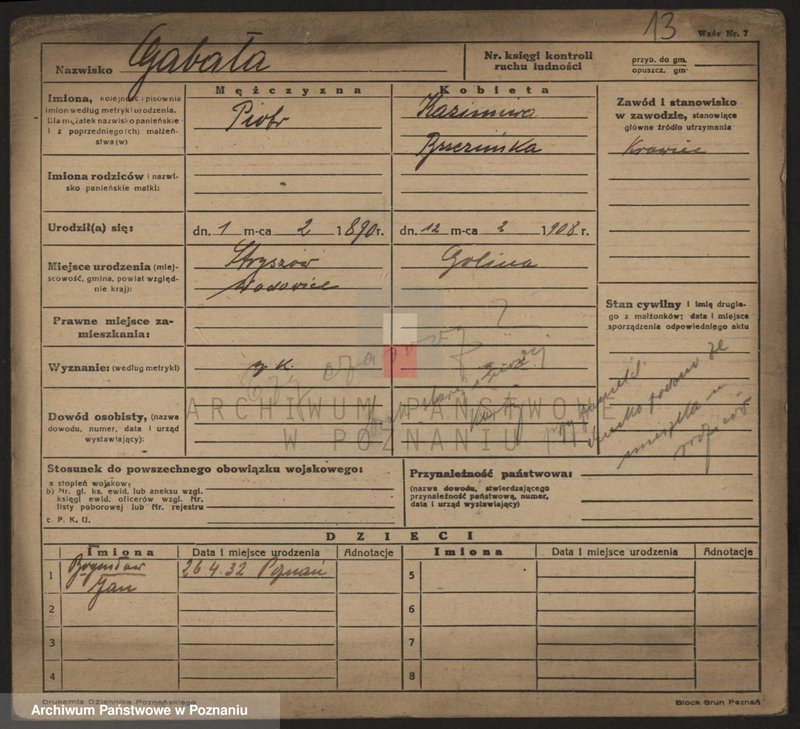 13
Wzór Nr. 7
Nazwisko Gabała
Nr. księgi kontroli
ruchu ludności
przyb. do gm.
opuszcz. gm.
Mężczyzna
Kobieta
Imiona, kolejność i pisownia
imion według metryki urodzenia.
Dla mężatek nazwisko panieńskie
i z poprzedniego(ich) małżeń-
stwa(w)
Piotr
Kazimiera
Brzezińska
Zawód i stanowisko
w zawodzie, stanowiące
główne źródło utrzymania
Krawiec
Imiona rodziców i nazwi-
sko panieńskie matki:
Urodził(a) się:
dn. 1 m-ca 2 1890 r.
dn. 12 m-ca 2 1908 r.
Miejsce urodzenia (miej-
scowość, gmina, powiat względ-
nie kraj):
Stryszów
Wadowice
Golina
Stan cywilny i imię drugie-
go z małżonków; data i miejsce
sporządzenia odpowiedniego aktu
Prawne miejsce za-
mieszkania:
Wyznanie: (według metryki)
rz. k.
Dowód osobisty, (nazwa
dowodu, numer, data i urząd
wystawiający):
ARCHIWUM PAŃSTWOWE
W POZNANIU
Stosunek do powszechnego obowiązku wojskowego:
a stopień wojskowy
b) Nr. gł. ks. ewid. lub aneksu wzgl.
księgi ewid. oficerów wzgl. Nr.
listy poborowej lub Nr. rejestru
c. P. K. U.
Przynależność państwowa:
(nazwa dowodu, stwierdzającego
przynależność państwową, numer,
data i urząd wystawiający)
DZIECI
Imiona
Data i miejsce urodzenia
Adnotacje
Imiona
Data i miejsce urodzenia
Adnotacje
1 Bogusław
Jan
26.4.32 Poznań
5
2
6
3
7
4
8
Drukarnia Dziennika Poznańskiego
Block Brun Poznań
Archiwum Państwowe w Poznaniu